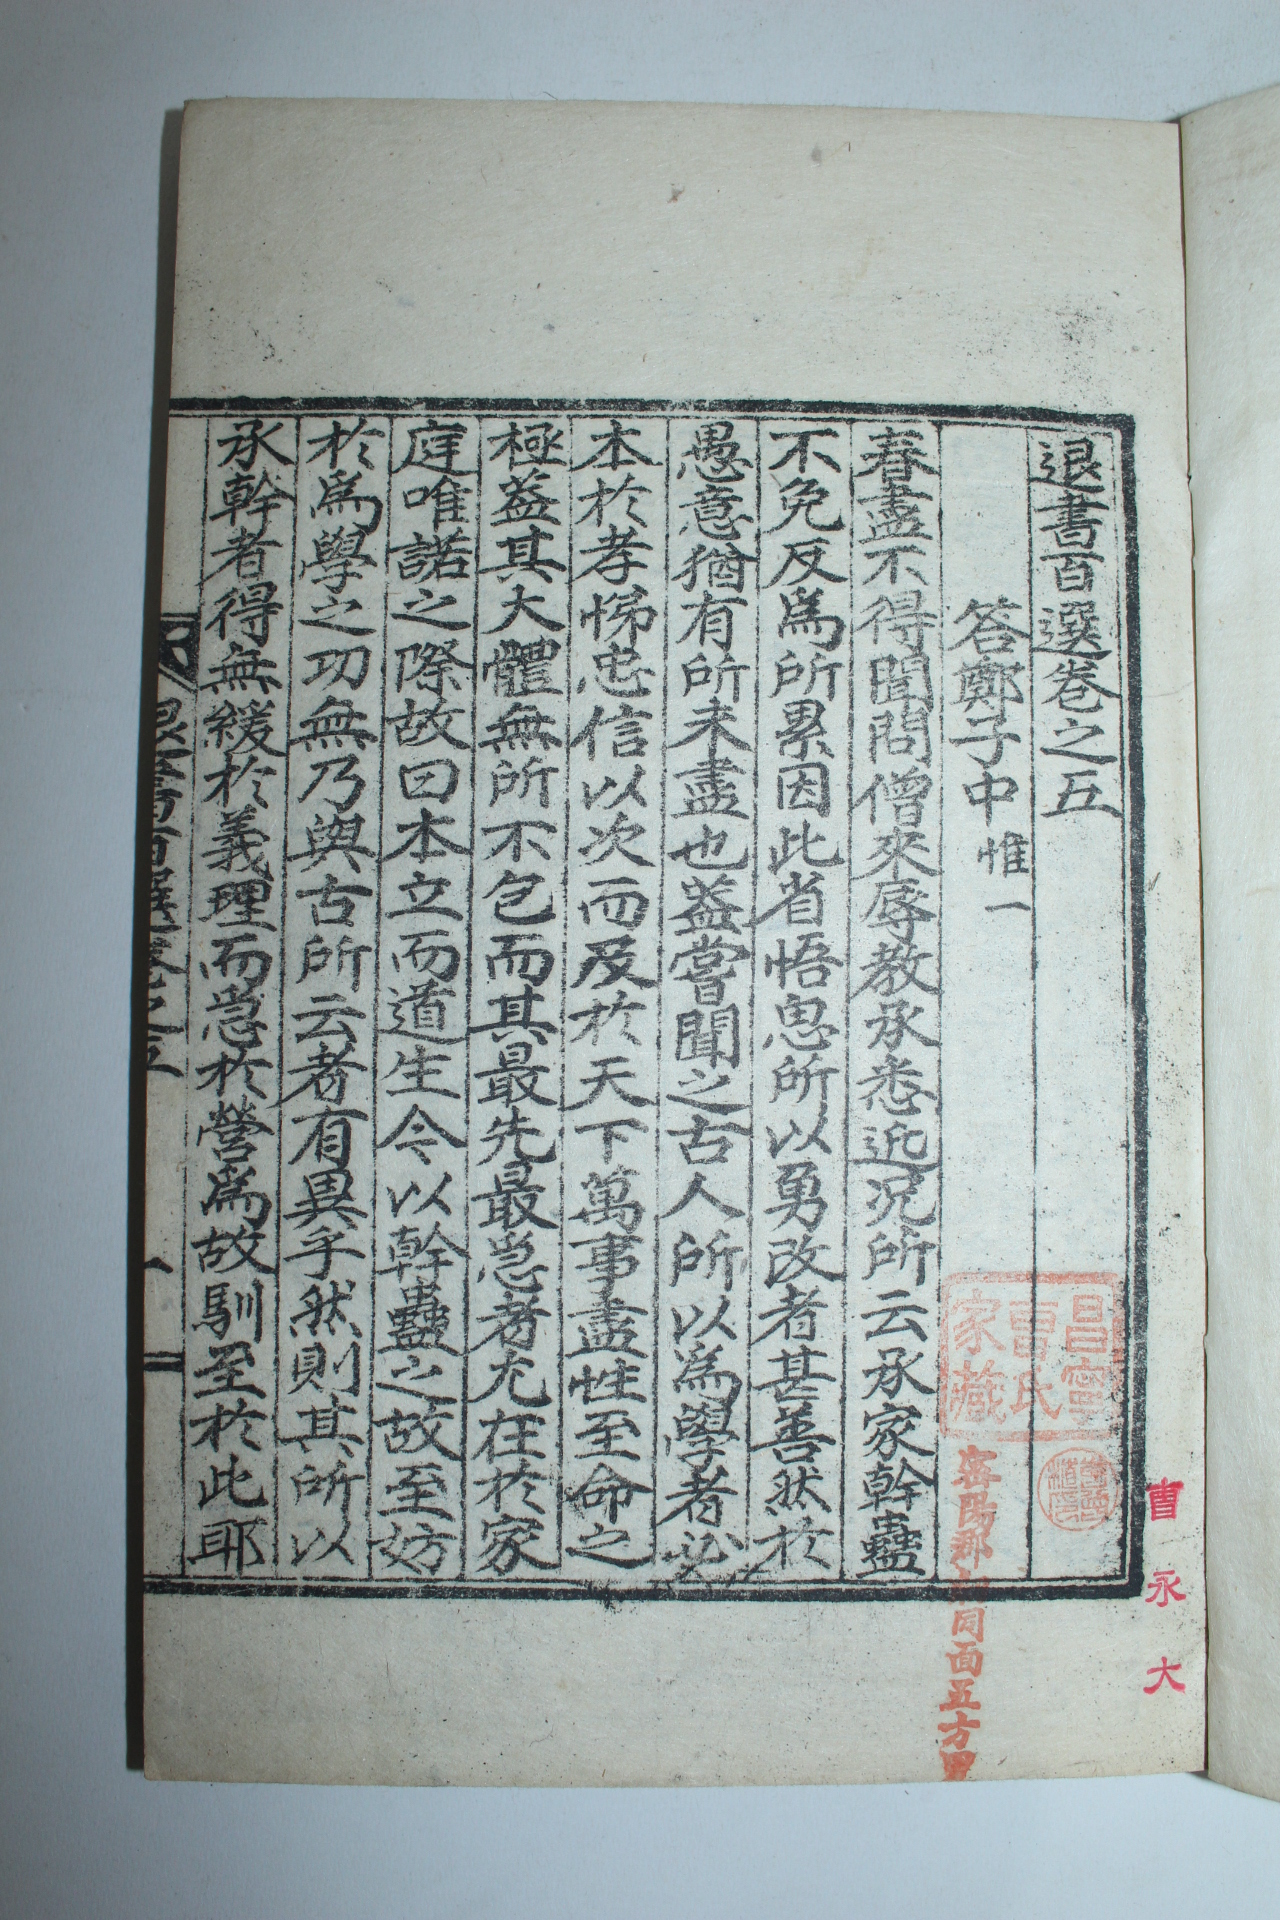 退書百選卷之五
答鄭子中 惟一
春盡不得聞問僧來辱教承悉近況所云承家幹蠱
不免反爲所累因此省悟思所以勇改者甚善然於
愚意猶有所未盡也蓋嘗聞之古人所以爲學者必
本於孝悌忠信以次而及於天下萬事盡性至命之
極蓋其大體無所不包而其最先最急者尤在於家
庭唯諾之際故曰本立而道生今以幹蠱之故至妨
於爲學之功無乃與古所云者有異乎然則其所以
承幹者得無緩於義理而急於營爲故馴至於此耶
退書百選卷之五
一
昌寧
曺氏
家藏
密陽郡
同面五方里
曺永大